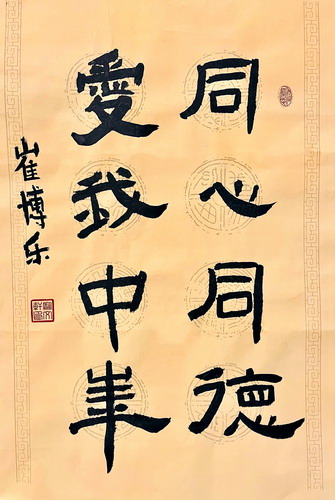 同心同德
愛我中華
崔博乐